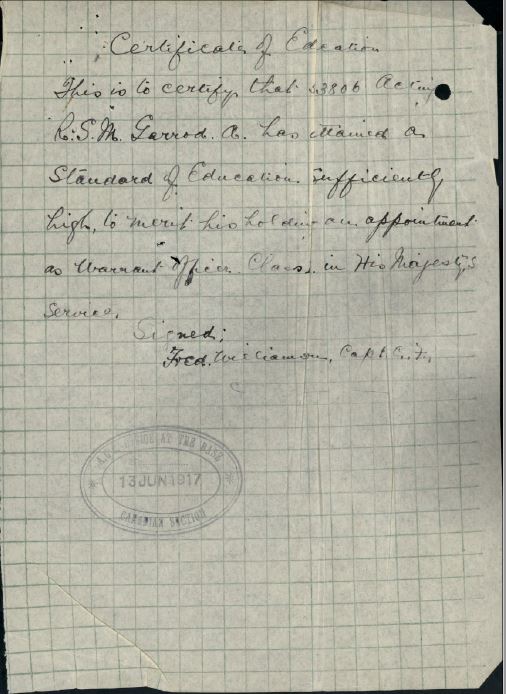 Certificate of Edcation
This is to certify that 23806 Acting
R.S.M. Garrod. A. has attained a
Standard of Education. sufficiently
high, to merit his holding an appointment
as Warrant Officer. Class. in His Majesty's
Service.
Signed;
Fred. Williamson, Capt. C.F.,
A.G. OFFICE AT THE BASE
13 JUN 1917
CANADIAN SECTION